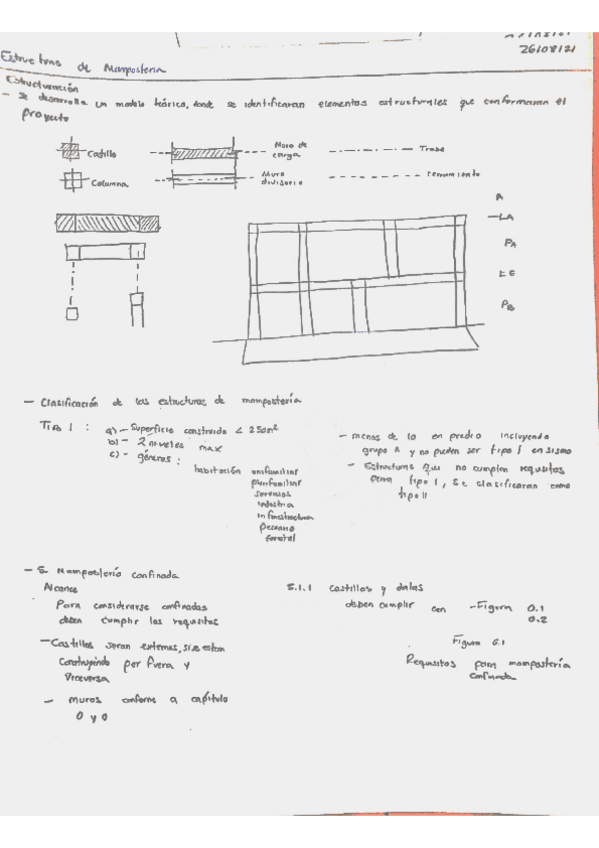 26/08/21
Estructuras de Mamposteria
Estructuración
- se desarrolla un modelo teórico, donde se identificaran elementos estructurales que conformaran el
proyecto
Castillo
Muro de
carga
Traba
Columna
Muro
divisorio
Cerramiento
A
LA
PA
LE
PB
- Clasificación de las estructuras de mampostería
Tipo I : a) - Superficie construida < 250m²
b) - 2 niveles max
c) - géneros :
habitación unifamiliar
plurifamiliar
servicios
industria
infraestructura
pecuario
forestal
- menos de 10 en predio incluyendo
grupo A y no pueden ser tipo I en sismo
- Estructuras que no cumplen requisitos
para tipo I, se clasificaran como
tipo II
- 5 Mampostería confinada
Alcance
Para considerarse confinadas
deben cumplir los requisitos
- Castillos seran externos, si se estan
construyendo por fuera y
viceversa
- muros conforme a capítulo
0 y 0
5.1.1 Castillos y dalas
deben cumplir con - Figura 0.1
0.2
Figura 6.1
Requisitos para mampostería
confinada